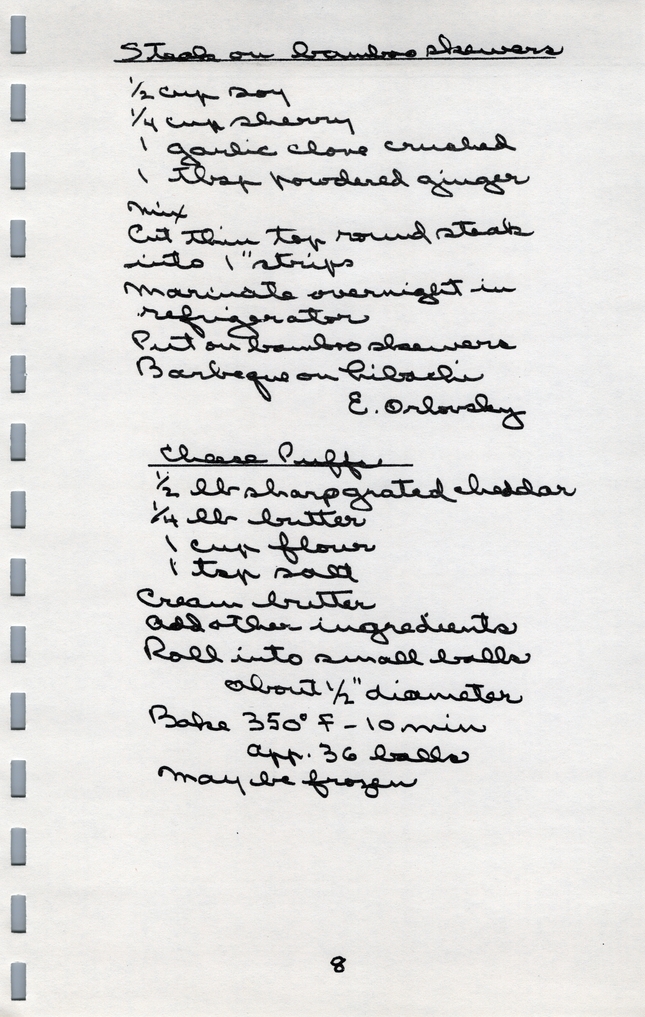 Steak on bamboo skewers
1/2 cup soy
1/4 cup sherry
1 garlic clove crushed
1 tbsp powdered ginger
mix
Cut thin top round steak
into 1" strips
Marinate overnight in
refrigerator
Put on bamboo skewers
Barbeque on hibachi
E. Orlovsky
Cheese Puffs
1/2 lb sharp grated cheddar
1/4 lb butter
1 cup flour
1 tsp salt
Cream butter
add other ingredients
Roll into small balls
about 1/2" diameter
Bake 350° F - 10 min
app. 36 balls
May be frozen
8